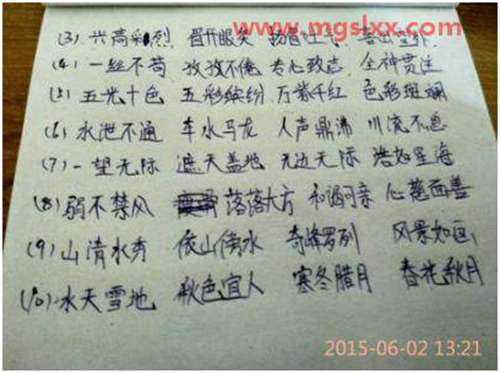 www.mgslxx.com
(3) 兴高采烈 眉开眼笑
(4) 一丝不苟 孜孜不倦 专心致志 全神贯注
(5) 五光十色 五彩缤纷 万紫千红 色彩斑斓
(6) 水泄不通 车水马龙 人声鼎沸 川流不息
(7) 一望无际 遮天盖地 无边无际 浩如星海
(8) 弱不禁风 落落大方 和谒可亲 心慈面善
(9) 山清水秀 依山傍水 奇峰罗列 风景如画
(10) 水天雪地 秋色宜人 寒冬腊月 春花秋月
2015-06-02 13:21